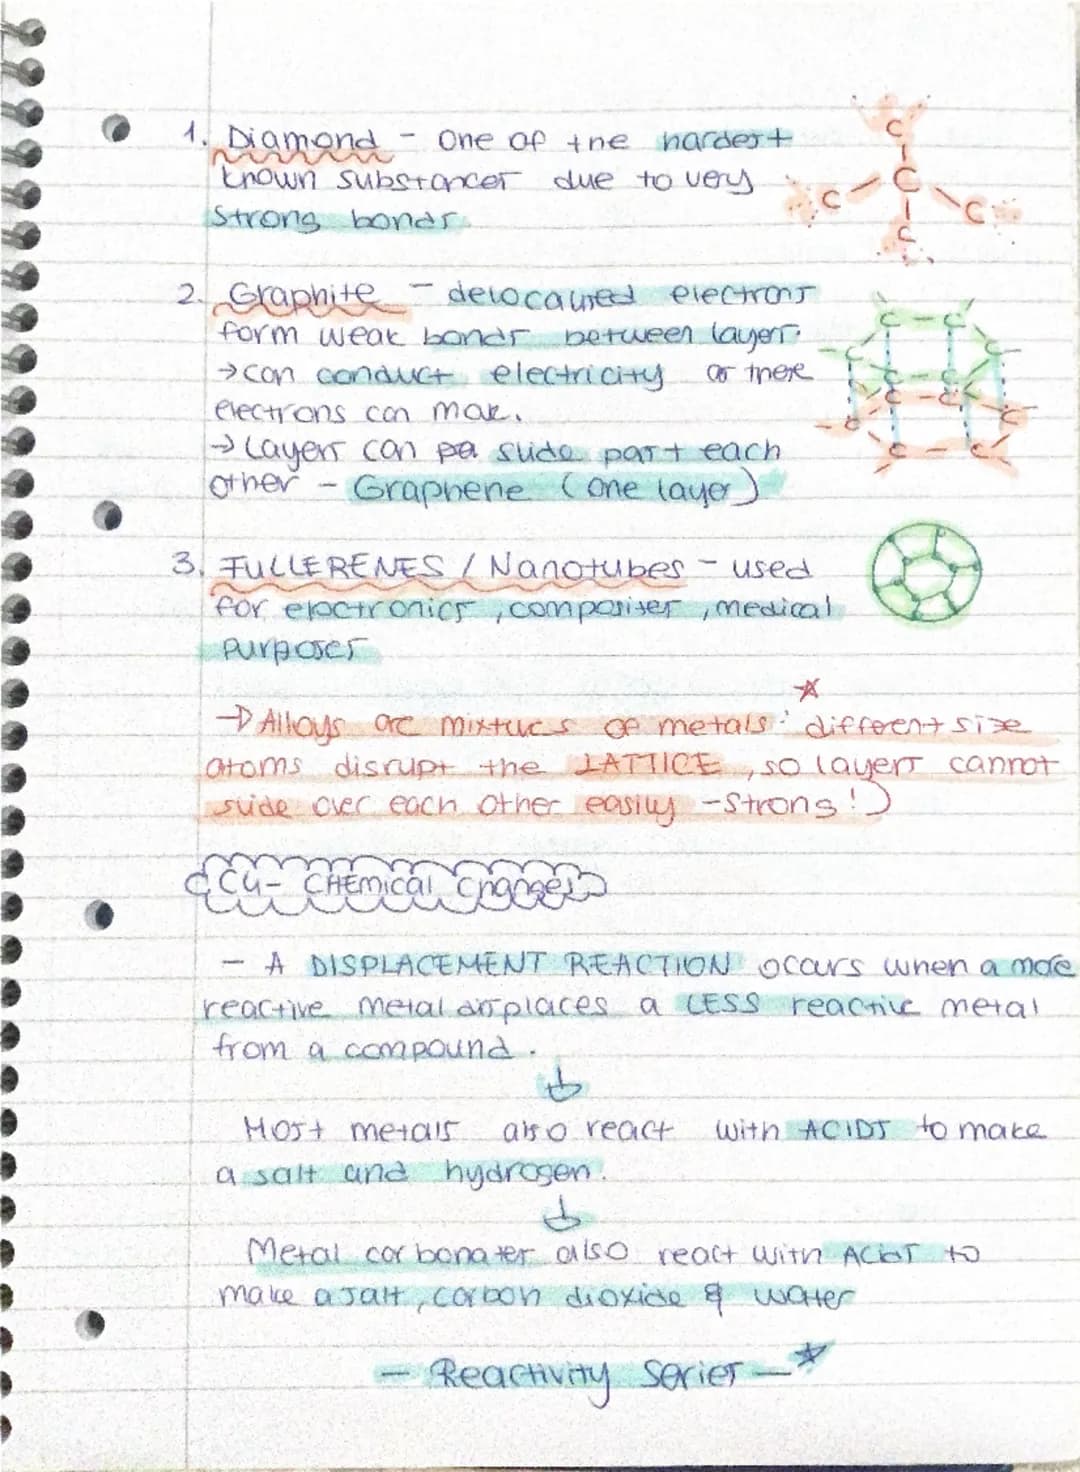 1. Diamond - One of the hardest
known substances due to very
strong bonds
C
C
C
C
C
2. Graphite - delocalised electrons
form weak bonds between layers.
→ can conduct electricity as these
electrons can move.
→ Layers can pa slide past each
other - Graphene (one layer)
C - C
C C
C C
C - C
C C
C - C
3. FULLERENES / Nanotubes - used
for electronics, composites, medical
purposes
→ Alloys are mixtures of metals: different size
atoms disrupt the LATTICE, so layers cannot
slide over each other easily - strong!)
C4 - CHEmical Changes
- A DISPLACEMENT REACTION occurs when a more
reactive metal displaces a LESS reactive metal
from a compound.
Most metals also react with ACIDS to make
a salt and hydrogen.
Metal carbonates also react with ACIDS to
make a salt, carbon dioxide & water
- Reactivity Series -